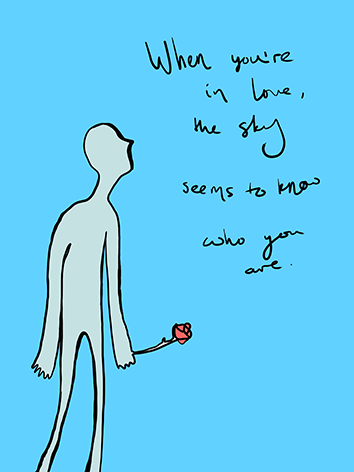 When you're
in love,
the sky
seems to know
who you
are.